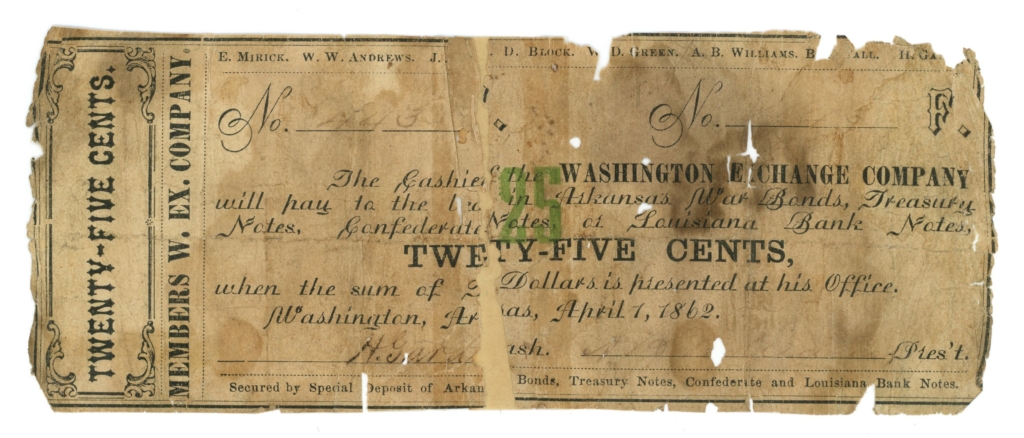 TWENTY-FIVE CENTS.
MEMBERS W. EX. COMPANY.
E. MIRICK. W. W. ANDREWS. J. D. BLOCK. D. GREEN. A. B. WILLIAMS.
No. No. F.
The Cashie the WASHINGTON EXCHANGE COMPANY
will pay to the in Arkansas War Bonds, Treasury
Notes, Confederate Notes, or Louisiana Bank Notes,
25
TWENTY-FIVE CENTS,
when the sum of Dollars is presented at his Office.
Washington, Ar sas, April 1, 1862.
ash. Pres't.
Secured by Special Deposit of Arkan Bonds, Treasury Notes, Confederate and Louisiana Bank Notes.